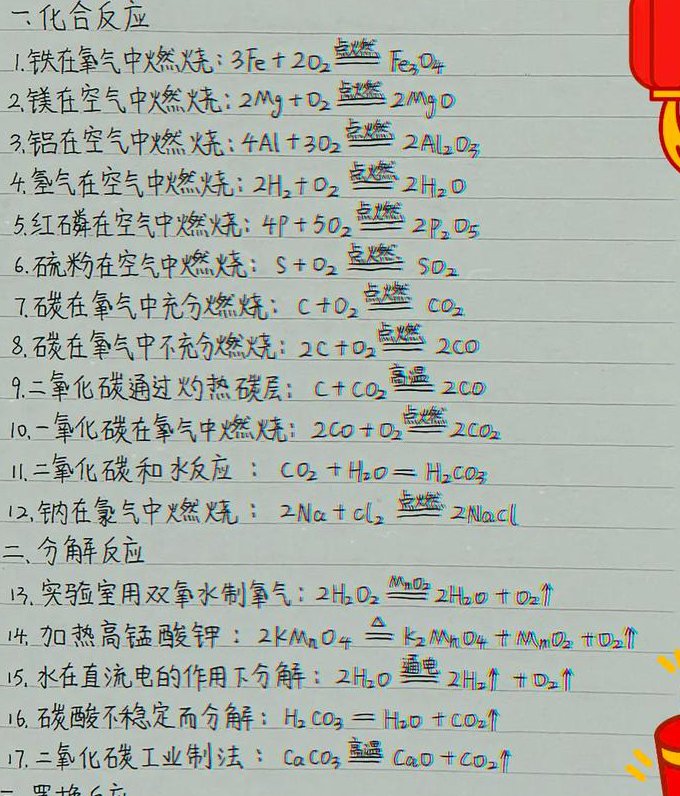 一、化合反应
1.铁在氧气中燃烧：3Fe+2O₂ 点燃 Fe₃O₄
2.镁在空气中燃烧：2Mg+O₂ 点燃 2MgO
3.铝在空气中燃烧：4Al+3O₂ 点燃 2Al₂O₃
4.氢气在空气中燃烧：2H₂+O₂ 点燃 2H₂O
5.红磷在空气中燃烧：4P+5O₂ 点燃 2P₂O₅
6.硫粉在空气中燃烧：S+O₂ 点燃 SO₂
7.碳在氧气中充分燃烧：C+O₂ 点燃 CO₂
8.碳在氧气中不充分燃烧：2C+O₂ 点燃 2CO
9.二氧化碳通过灼热碳层：C+CO₂ 高温 2CO
10.一氧化碳在氧气中燃烧：2CO+O₂ 点燃 2CO₂
11.二氧化碳和水反应：CO₂+H₂O=H₂CO₃
12.钠在氯气中燃烧：2Na+Cl₂ 点燃 2NaCl
二、分解反应
13.实验室用双氧水制氧气：2H₂O₂ MnO₂ 2H₂O+O₂↑
14.加热高锰酸钾：2KMnO₄ △ K₂MnO₄+MnO₂+O₂↑
15.水在直流电的作用下分解：2H₂O 通电 2H₂↑+O₂↑
16.碳酸不稳定而分解：H₂CO₃=H₂O+CO₂↑
17.二氧化碳工业制法：CaCO₃ 高温 CaO+CO₂↑